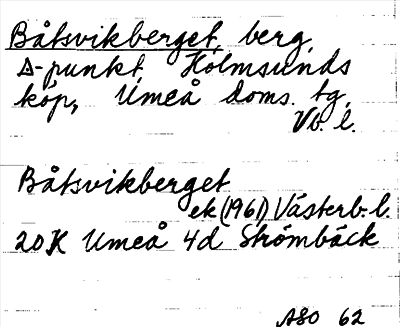 Båtsvikberget, berg,
Δ-punkt, Holmsunds
köp, Umeå doms. tg,
Vb. l.
Båtsvikberget
ek (1961) Västerb. l.
20K Umeå 4d Strömbäck
ASO 62